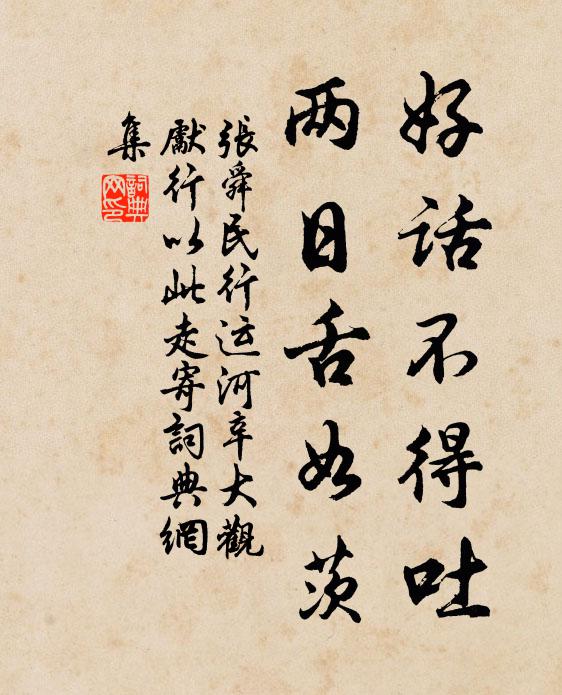 好话不得吐
两日舌如茨
張舜民行运河辛大觀
獻行以此走寄詞典網
集
詞典网印